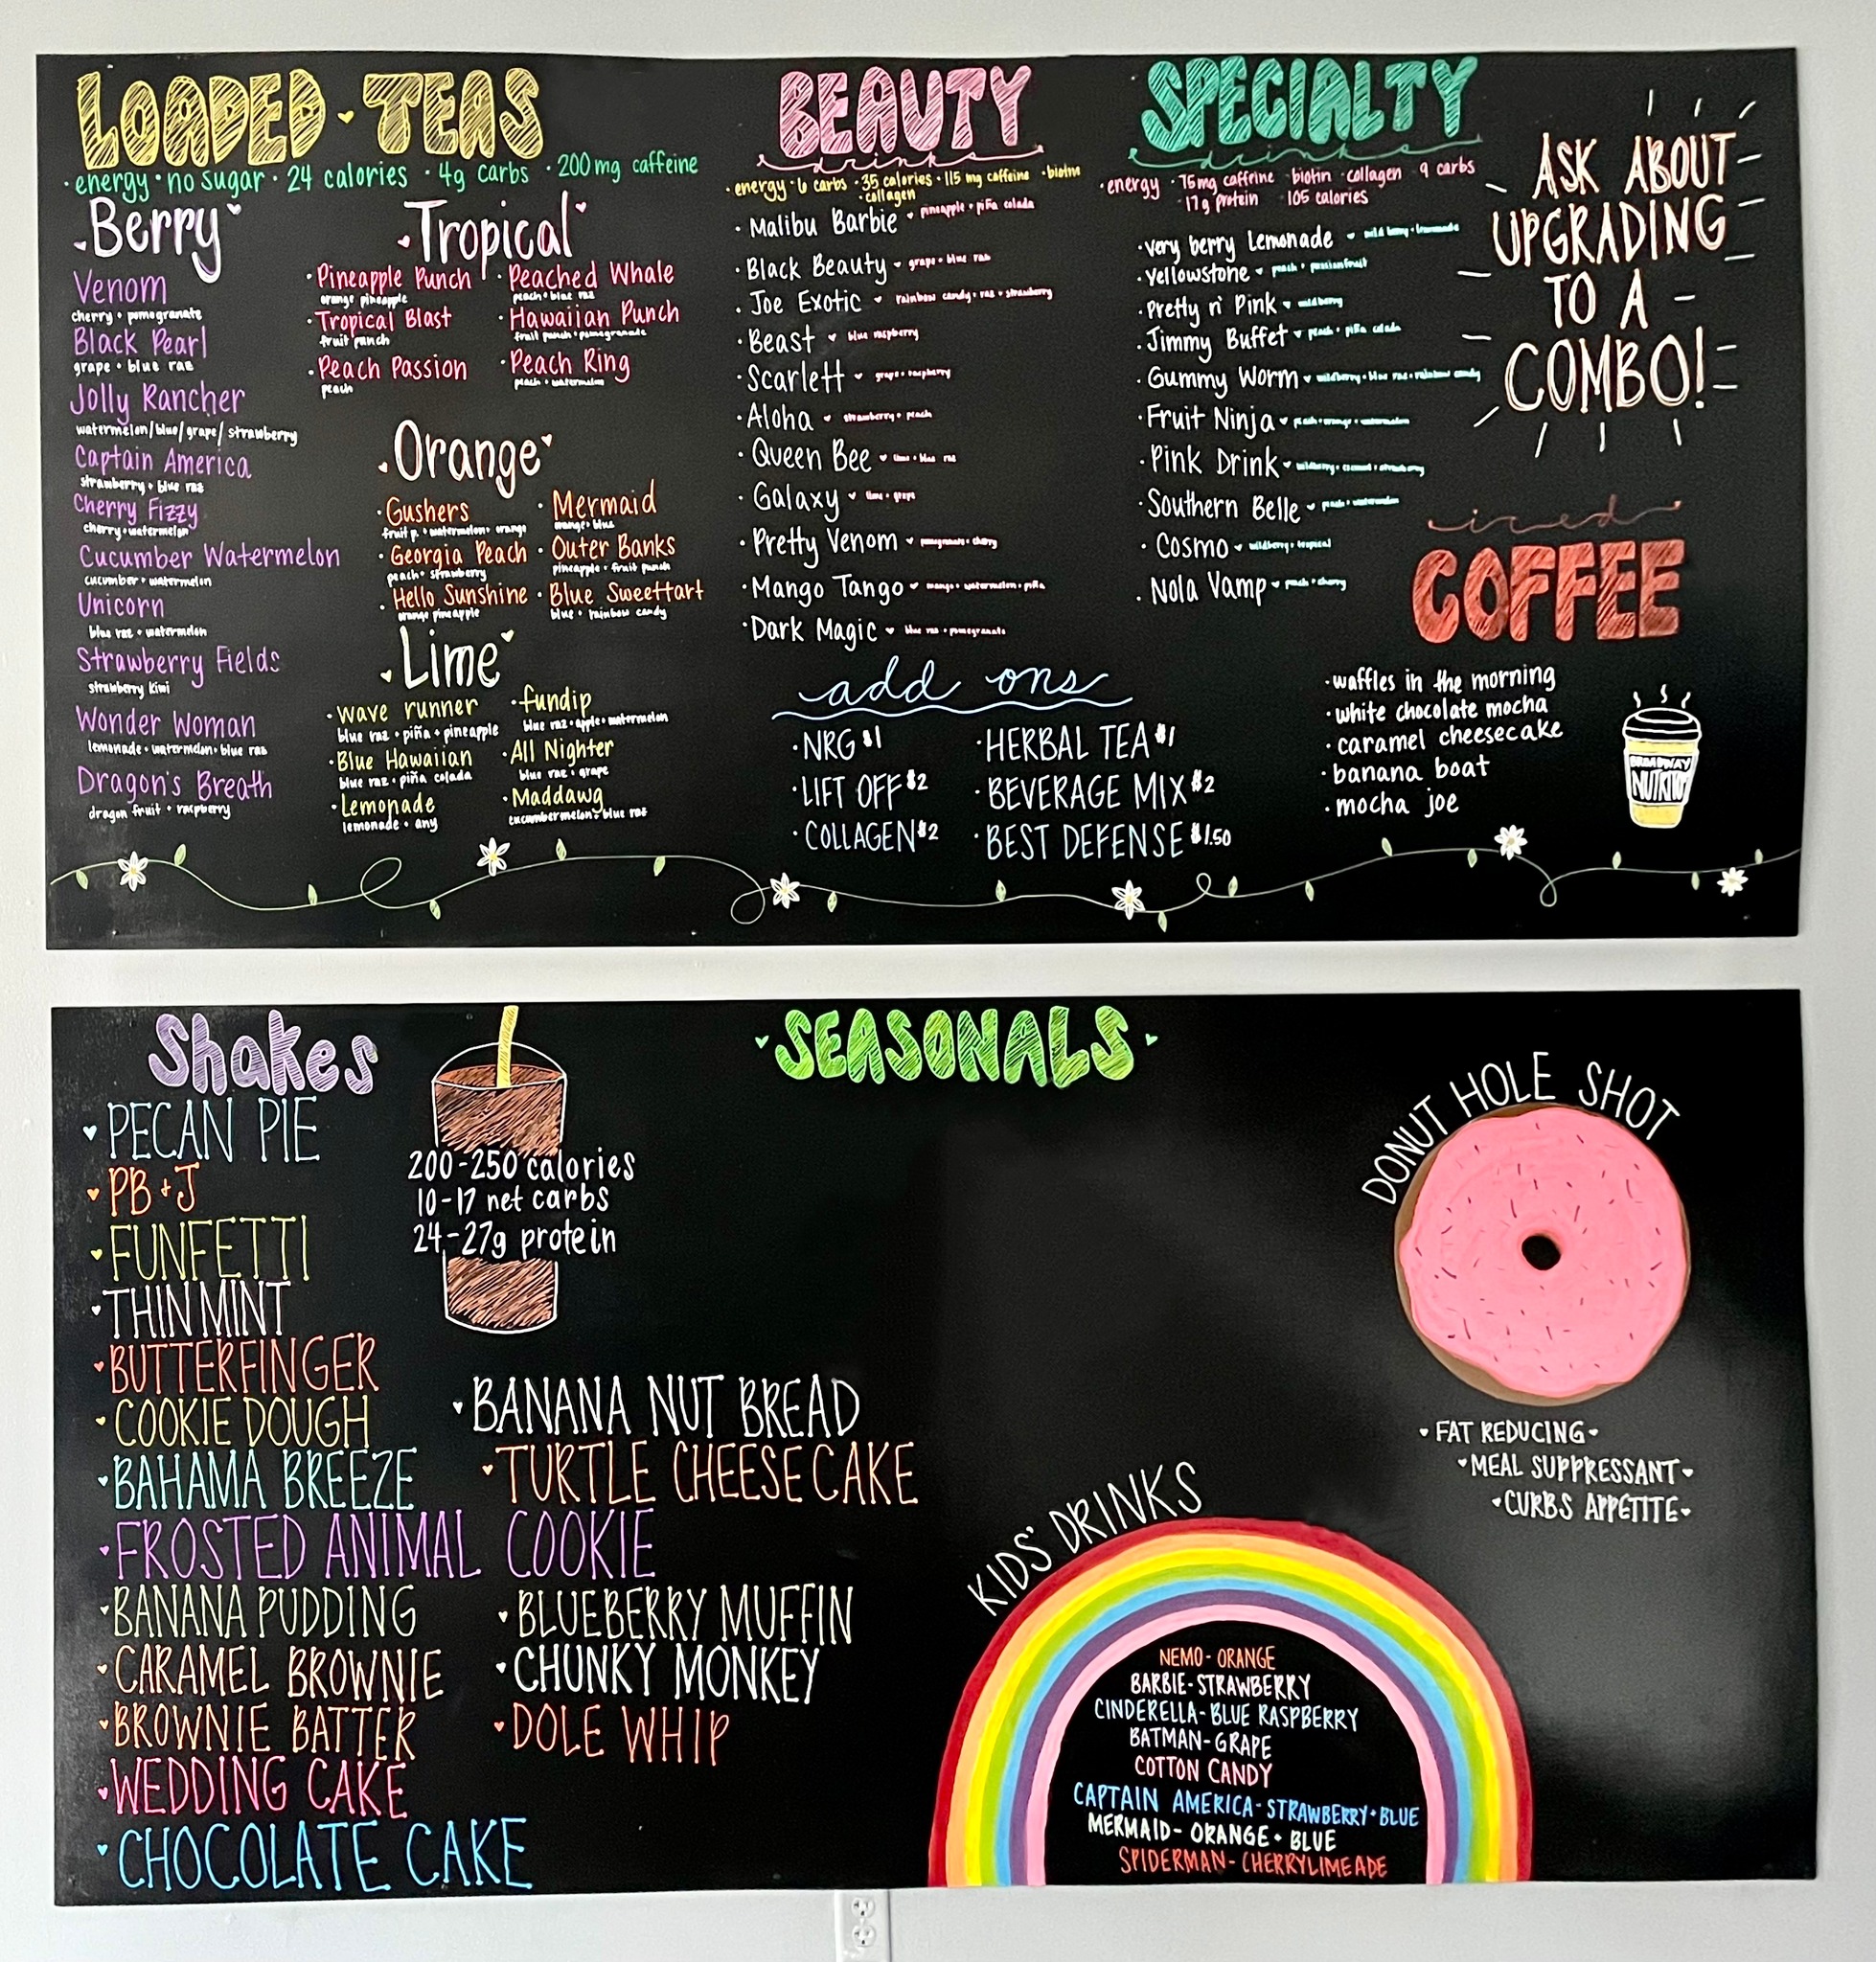 LOADED TEAS
• energy • no sugar • 24 calories • 4g carbs • 200 mg caffeine
Berry
Venom
cherry + pomegranate
Black Pearl
grape + blue raz
Jolly Rancher
watermelon/blue/grape/strawberry
Captain America
strawberry + blue raz
Cherry Fizzy
cherry + watermelon
Cucumber Watermelon
cucumber + watermelon
Unicorn
blue raz + watermelon
Strawberry Fields
strawberry kiwi
Wonder Woman
lemonade + watermelon + blue raz
Dragon's Breath
dragon fruit + raspberry
Tropical
• Pineapple Punch
orange pineapple
• Tropical Blast
fruit punch
• Peach Passion
peach
• Peached Whale
peach + blue raz
• Hawaiian Punch
fruit punch + pomegranate
• Peach Ring
peach + watermelon
Orange
• Gushers
fruit p. + watermelon + orange
• Georgia Peach
peach + strawberry
• Hello Sunshine
orange pineapple
• Mermaid
orange + blue
• Outer Banks
pineapple + fruit punch
• Blue Sweettart
blue + rainbow candy
Lime
• wave runner
blue raz + piña + pineapple
• Blue Hawaiian
blue raz + piña colada
• Lemonade
lemonade + any
• fundip
blue raz + apple + watermelon
• All Nighter
blue raz + grape
• Maddawg
cucumber melon + blue raz
BEAUTY
drinks
• energy • 6 carbs • 35 calories • 115 mg caffeine • biotin
• collagen
• Malibu Barbie pineapple + piña colada
• Black Beauty grape + blue raz
• Joe Exotic rainbow candy + raz + strawberry
• Beast blue raspberry
• Scarlett grape + raspberry
• Aloha strawberry + peach
• Queen Bee lime + blue raz
• Galaxy lime + grape
• Pretty Venom pomegranate + cherry
• Mango Tango mango + watermelon + piña
• Dark Magic blue raz + pomegranate
add ons
• NRG $1
• LIFT OFF $2
• COLLAGEN $2
• HERBAL TEA $1
• BEVERAGE MIX $2
• BEST DEFENSE $1.50
SPECIALTY
drinks
• energy • 75mg caffeine • biotin • collagen • 9 carbs
• 17g protein • 105 calories
• Very berry Lemonade wild berry + lemonade
• Yellowstone peach + passionfruit
• Pretty n' Pink wildberry
• Jimmy Buffet peach + piña colada
• Gummy Worm wildberry + blue raz + rainbow candy
• Fruit Ninja peach + orange + watermelon
• Pink Drink wildberry + coconut + strawberry
• Southern Belle peach + watermelon
• Cosmo wildberry + tropical
• Nola Vamp peach + cherry
ASK ABOUT
UPGRADING
TO A
COMBO!
iced
COFFEE
• waffles in the morning
• white chocolate mocha
• caramel cheesecake
• banana boat
• mocha joe
BROADWAY
Shakes
PECAN PIE
PB+J
FUNFETTI
THIN MINT
BUTTERFINGER
COOKIE DOUGH
BAHAMA BREEZE
FROSTED ANIMAL COOKIE
BANANA PUDDING
CARAMEL BROWNIE
BROWNIE BATTER
WEDDING CAKE
CHOCOLATE CAKE
200-250 calories
10-17 net carbs
24-27g protein
BANANA NUT BREAD
TURTLE CHEESECAKE
BLUEBERRY MUFFIN
CHUNKY MONKEY
DOLE WHIP
SEASONALS
DONUT HOLE SHOT
FAT REDUCING
MEAL SUPPRESSANT
CURBS APPETITE
KIDS' DRINKS
NEMO - ORANGE
BARBIE - STRAWBERRY
CINDERELLA - BLUE RASPBERRY
BATMAN - GRAPE
COTTON CANDY
CAPTAIN AMERICA - STRAWBERRY + BLUE
MERMAID - ORANGE + BLUE
SPIDERMAN - CHERRYLIMEADE